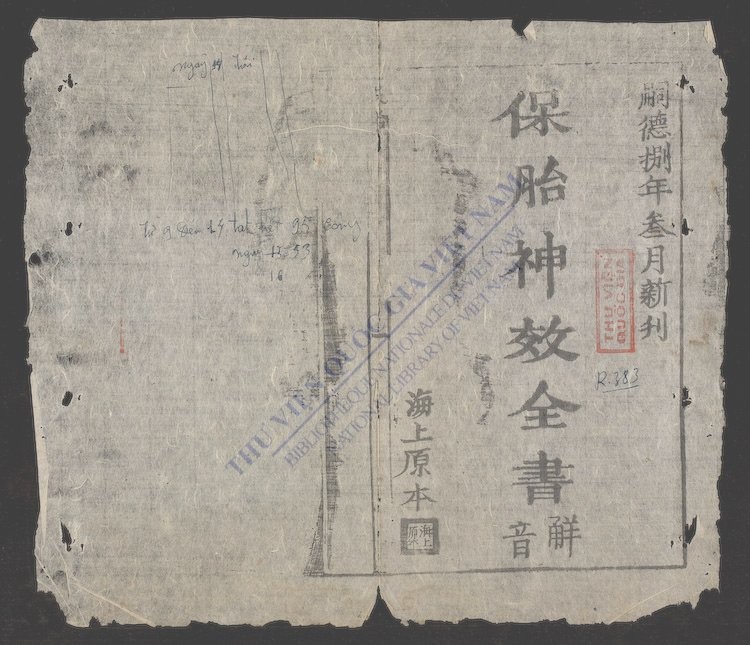 嗣德捌年叁月新刊
保胎神效全書
解音
海上原本
海上原本
THƯ VIỆN
QUỐC GIA
R.383
THƯ VIỆN QUỐC GIA VIỆT NAM
BIBLIOTHEQUE NATIONALE DU VIETNAM
NATIONAL LIBRARY OF VIETNAM
ngày
35
ngày 12 53
16